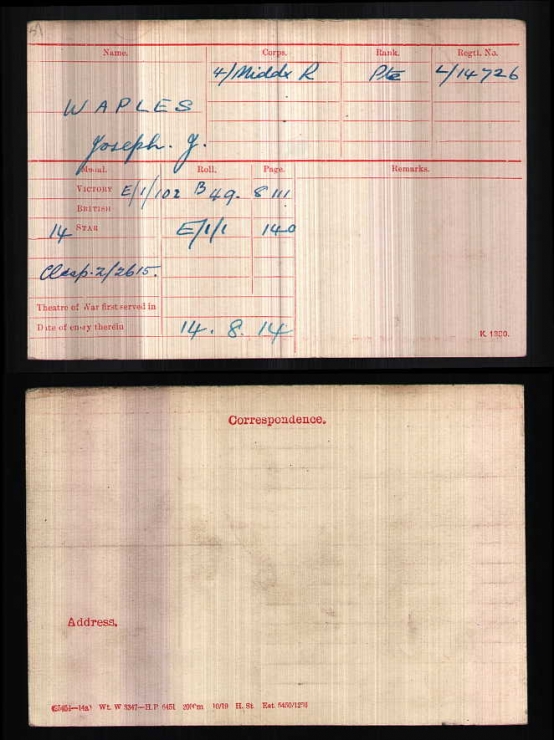 Name. Corps. Rank. Regtl. No.
4/Middx R Pte L/14726
WAPLES
Joseph. J.
Medal. Roll. Page. Remarks.
VICTORY E/1/102 B49. 8111
BRITISH
14 STAR E/1/1 140
Clasp. 2/2615.
Theatre of War first served in
Date of entry therein 14. 8. 14
K. 1380.
Correspondence.
Address.
Wt. W 5347—H.P. 10/19 H. St.